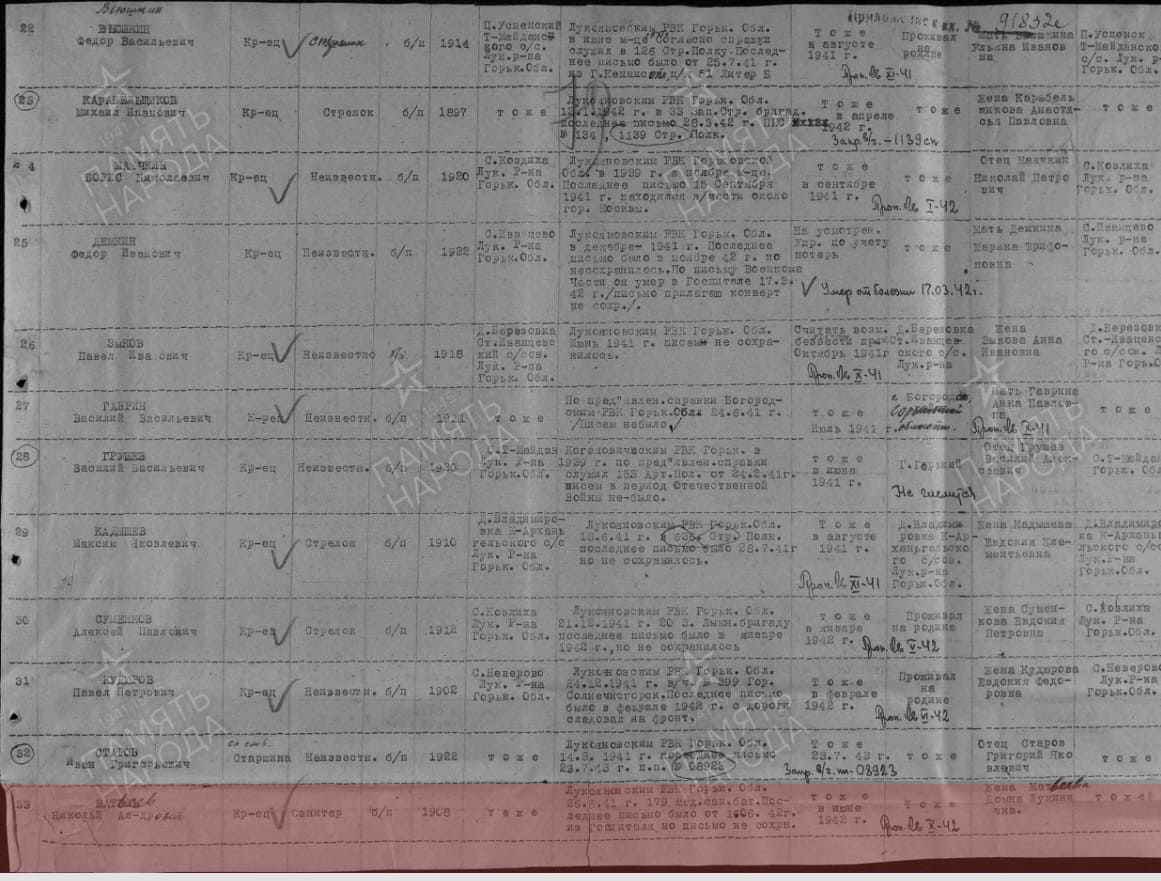 Вьюшкин
Приложение к вх. № 91832с
22 ВЬЮШКИН Федор Васильевич Кр-ец Стрелок б/п 1914
П.Успенский Т-Майданского с/с. Лук.р-на Горьк.Обл.
Лукояновским РВК Горьк. Обл. в июле м-це согласно справки служил в 126 Стр.Полку. Последнее письмо было от 25.7.41 г.
Т о ж е в августе 1941 г.
Проп. б/в XI-41
Проживал на родине
Мать Вьюшкина Ульяна Ивановна
П.Успенск Т-Майданско с/с. Лук. р- Горьк.Обл.
23 КАРАБЕЛЬЩИКОВ Михаил Иванович Кр-ец Стрелок б/п 1897 т о ж е
Лукояновским РВК Горьк. Обл. 12.1.1942 г. в 33 Зап.Стр. бригад. Последнее письмо 28.3.42 г. ППС № 134, 1139 Стр. Полк.
Т о ж е в апреле 1942 г.
Запр. в/ч.-1139 сп
т о ж е
Жена Карабельщикова Анастасья Павловна
т о ж е
4 МАЧКИН БОРИС Николаевич Кр-ец Неизвестн. б/п 1920
С.Козлиха Лук. Р-на Горьк. Обл.
Лукояновским РВК Горьковской Обл. в 1939 г. в ноябре м-це. Последнее письмо 15 Сентября 1941 г. находился в/части около гор. Москвы.
Т о ж е в сентябре 1941 г.
Проп. б/в I-42
т о ж е
Отец Мачкин Николай Петрович
С.Козлиха Лук. Р-на Горьк. Обл.
25 ДЕМКИН Федор Иванович Кр-ец Неизвестн. б/п 1922
С.Иванцево Лук. Р-на Горьк.Обл.
Лукояновским РВК Горьк. Обл. в декабре- 1941 г. Последнее письмо было в ноябре 42 г. но несохранилось.По письму Военкома Части он умер в Госпитале 17.3. 42 г./письмо прилагаю конверт не сохр./.
На усмотрен. Упр. по учету потерь
Умер от болезни 17.03.42 г.
т о ж е
Мать Демкина Марина Трифоновна
С.Иванцево Лук. р-на Горьк. Обл.
26 ЗЫКОВ Павел Иванович Кр-ец Неизвестно б/п 1918
Д.Березовка Ст.Иванцевский с/сов. Лук. Р-на Горьк. Обл.
Лукояновским РВК Горьк. Обл. Июнь 1941 г. писем не сохранилось.
Считать возм. безвести проп. Октябрь 1941г
Проп. б/в X-41
Д.Березовка Ст.Иванцевского с/с. Лук.р-на
Жена Зыкова Анна Ивановна
Д.Березовк Ст.-Иванцево с/сов. Р-на Горьк.
27 ГАВРИН Василий Васильевич К-рец Неизвестн. б/п т о ж е
По пред"явлен.справки Богородским РВК Горьк.Обл. 24.6.41 г. /Писем небыло/
т о ж е Июль 1941 г.
г. Богородск Горьковской области.
Мать Гаврина Анна Павловна
Проп. б/в X-41
т о ж е
28 ГРУШЕВ Василий Васильевич Кр-ец Неизвестн. б/п 1920
С.Т-Майдан Лук. Р-на Горьк.Обл.
Кагановичевским РВК Горьк. в 1939 г. по пред"явлен.справки служил 133 Арт.Пол. от 24.2.41г. писем в период Отечественной Войны не-было.
Т о ж е в июне 1941 г.
Г.Горький
Не числится
Отец Грушев Василий Алексеевич
С.Т-Майдан Горьк. Обл
29 КАДЫШЕВ Максим Яковлевич. Кр-ец Стрелок б/п 1910
Д.Владимировка К-Арханьгельского с/с Лук. Р-на Горьк. Обл.
Лукояновским РВК Горьк.Обл. 13.6.41 г. в 636 Стр. Полк. последнее письмо было 28.7.41г но не сохранилось.
Т о ж е в августе 1941 г.
Проп. б/в XI-41
Д.Владимировка К-Арханьгельского с/сов. Лук.р-на Горьк.Обл.
Жена Кадышева Евдокия Клементьевна
Д.Владимиро ка К-Арханьг льского с/со Лук.Р-на Горьк.Обл.
30 СУМЕНКОВ Алексей Павлович Кр-ец Стрелок б/п 1912
С.Ковлиха Лук. Р-на Горьк. Обл.
Лукояновским РВК Горьк. Обл. 21.12.1941 г. 20 З. Лыжн.бригаду последнее письмо было в январе 1942 г., но не сохранилось
т о ж е в январе 1942 г.
Проп. б/в V-42
Проживал на родине
Жена Суменкова Евдокия Петровна
С.Ковлиха Лук. Р-на Горьк.Обл.
31 КУДЮРОВ Павел Петрович Кр-ец Неизвестн. б/п 1902
С.Неверово Лук. Р-на Горьк. Обл.
Лукояновским РВК Горьк. Обл. 24.12.1941 г. в/ч. № 399 Гор. Солнечногорск.Последнее письмо было в феврале 1942 г. с дороги следовал на фронт.
Т о ж е в феврале 1942 г.
Проп. б/в VI-42
Проживал на родине
Жена Кудюрова Евдокия Федоровна
С.Неверово Лук.Р-на Горьк.Обл.
32 СТАРОВ Иван Григорьевич Старшина Неизвестн. б/п 1922 т о ж е
Лукояновским РВК Горьк. Обл. 14.3. 1941 г. последнее письмо 23.7.43 г. п.п. № 08923
Т о ж е 23.7. 43 г.
Запр. в/ч. пп-08923
т о ж е
Отец Старов Григорий Яковлевич
т о ж е
33 МАТВЕЕВ Николай Ал-дрович Кр-ец Санитар б/п 1908 т о ж е
Лукояновским РВК Горьк. Обл. 26.6.41 г. 179 мед.сан.бат.Последнее письмо было от 1606. 42г. из Госпиталя но письмо не сохрн.
т о ж е в июне 1942 г.
Т о ж е
Проп. б/в X-42
Жена Матвеева
т о ж е
ПАМЯТЬ НАРОДА